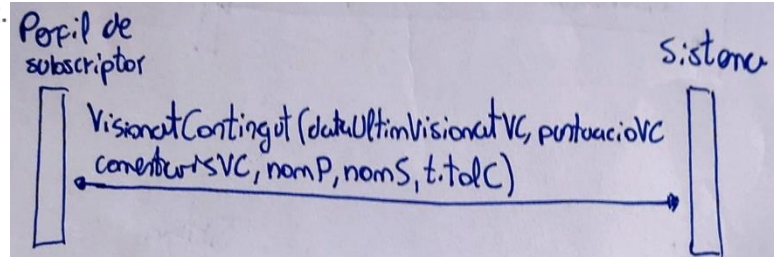 Perfil de
subscriptor
Sistema
VisionatContingut (dataUltimVisionatVC, puntuacioVC
comentarisVC, nomP, nomS, titolC)